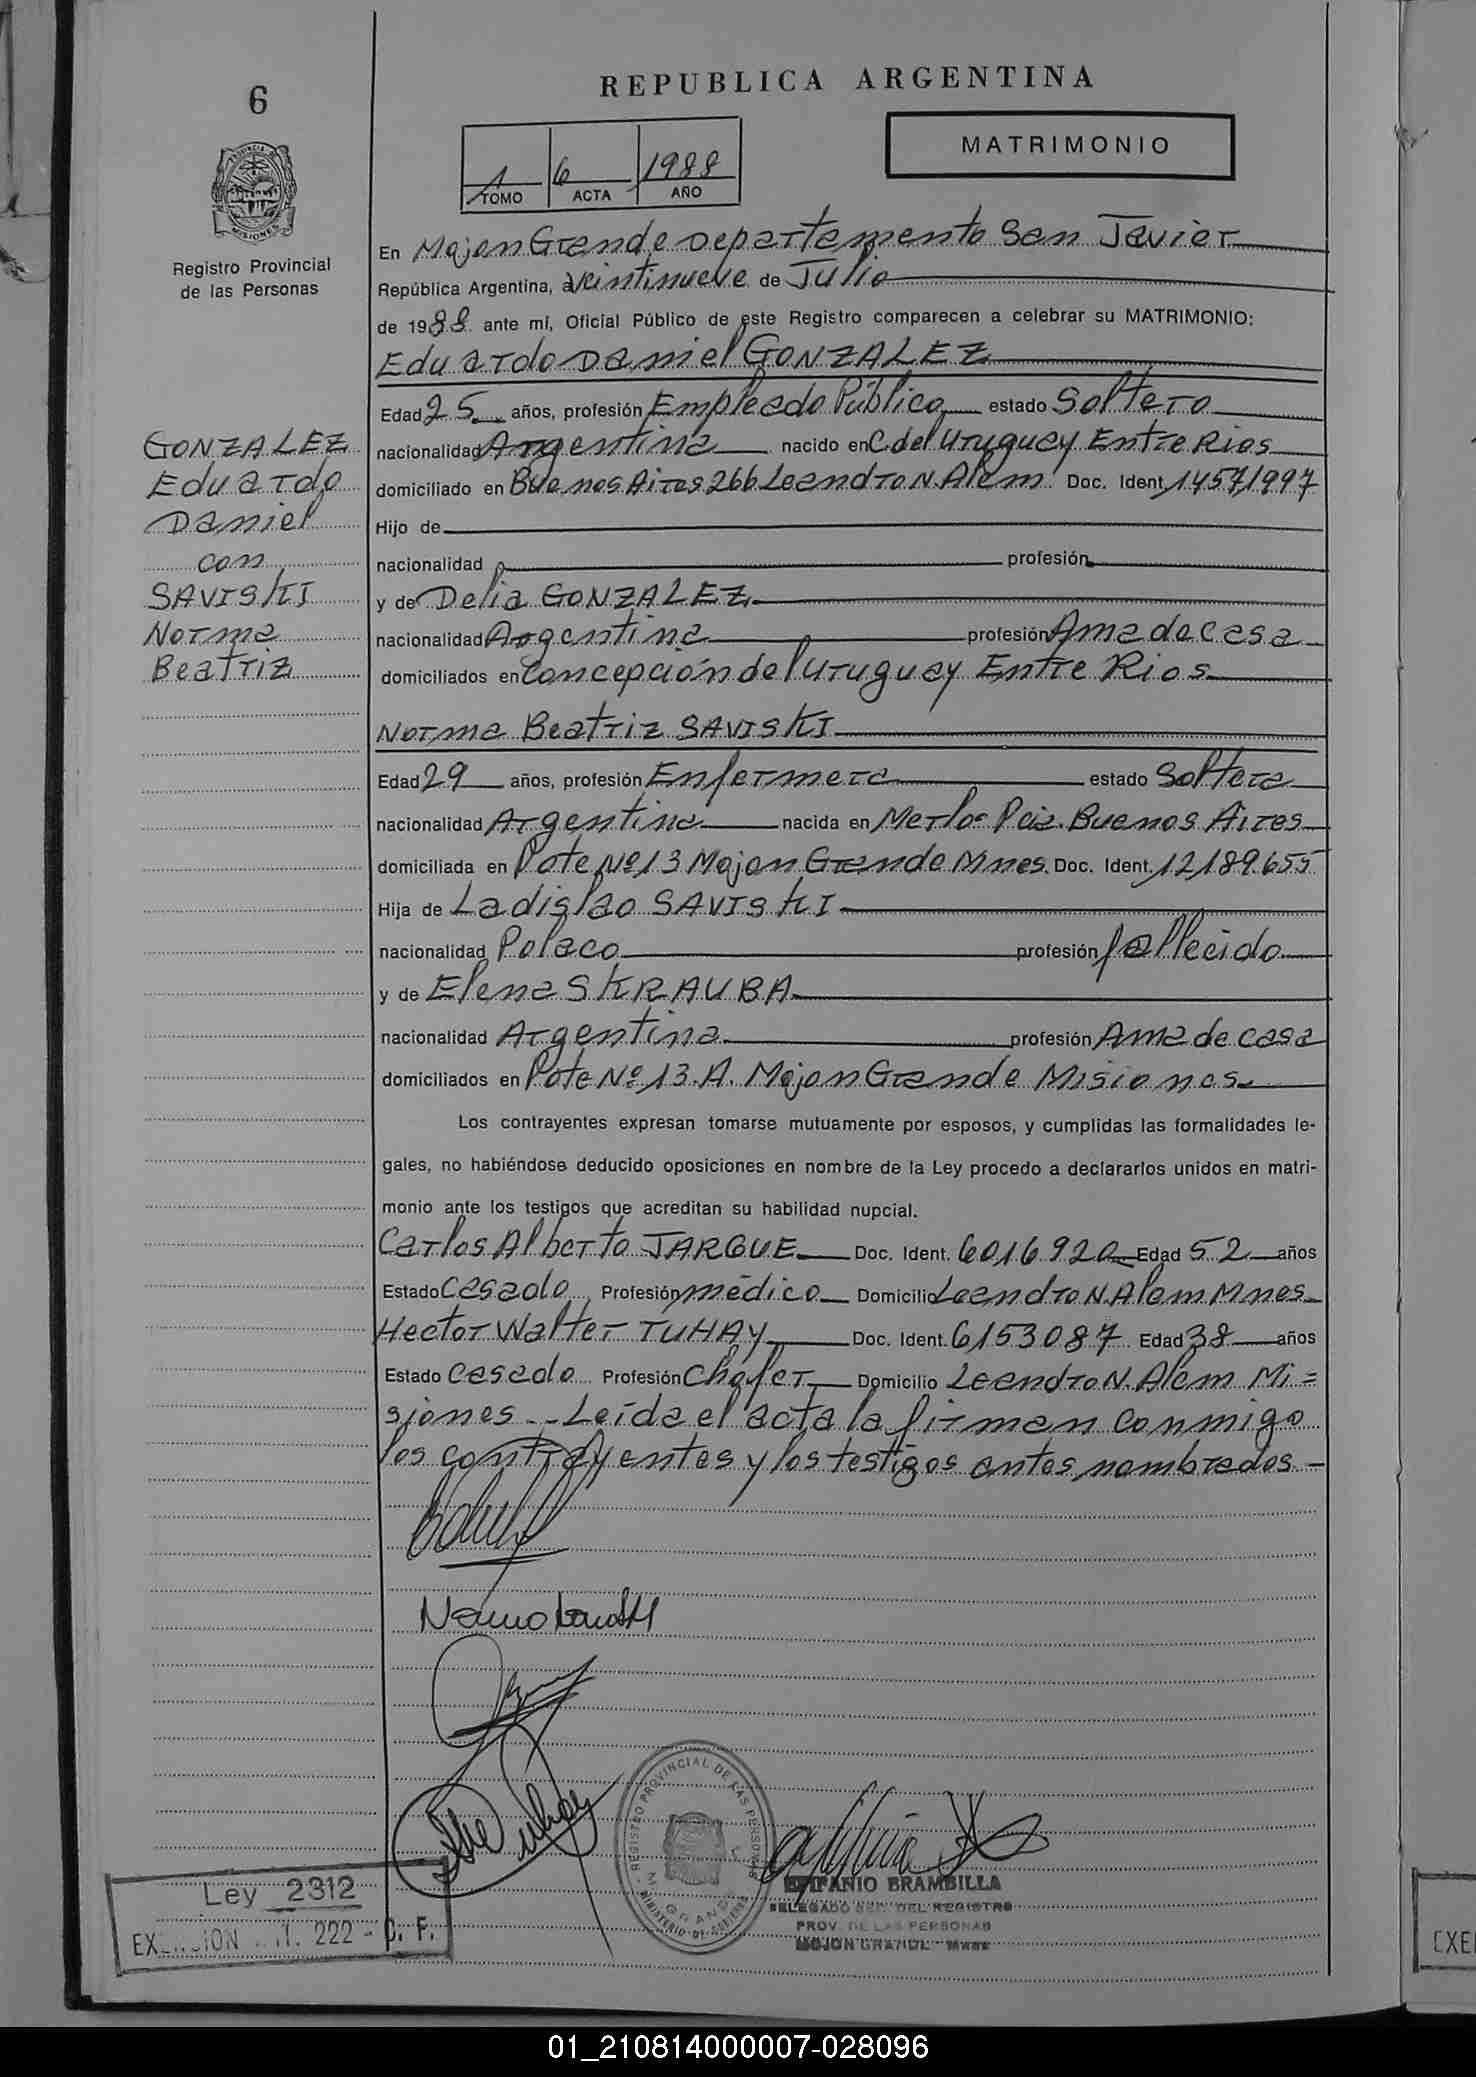 6
REPUBLICA ARGENTINA
MATRIMONIO
1 6 1988
TOMO ACTA AÑO
PROVINCIA DE
MISIONES
Registro Provincial
de las Personas
En Mojon Grande Departamento San Javier
República Argentina, a veintinueve de Julio
de 1988 ante mí, Oficial Público de este Registro comparecen a celebrar su MATRIMONIO:
Eduardo Daniel GONZALEZ
Edad 25 años, profesión Empleado Público estado Soltero
nacionalidad Argentina nacido en C. del Uruguay Entre Rios
domiciliado en Buenos Aires 266 Leandro N Alem Doc. Ident. 14571997
Hijo de
nacionalidad profesión
y de Delia GONZALEZ
nacionalidad Argentina profesión Ama de casa
domiciliados en Concepción del Uruguay Entre Rios
GONZALEZ
Eduardo
Daniel
con
SAVISKI
Norma
Beatriz
Norma Beatriz SAVISKI
Edad 29 años, profesión Enfermera estado Soltera
nacionalidad Argentina nacida en Merlo Pcia. Buenos Aires
domiciliada en Lote Nº 13 Mojon Grande Mnes. Doc. Ident. 12189.655
Hija de Ladislao SAVISKI
nacionalidad Polaco profesión fallecido
y de Elena SKRAUBA
nacionalidad Argentina profesión Ama de casa
domiciliados en Lote Nº 13.A. Mojon Grande Misiones
Los contrayentes expresan tomarse mutuamente por esposos, y cumplidas las formalidades le-
gales, no habiéndose deducido oposiciones en nombre de la Ley procedo a declararlos unidos en matri-
monio ante los testigos que acreditan su habilidad nupcial.
Carlos Alberto JARGUE Doc. Ident. 6016920 Edad 52 años
Estado Casado Profesión médico Domicilio Leandro N. Alem Mnes.
Hector Walter TUHAY Doc. Ident. 6153087 Edad 38 años
Estado Casado Profesión Chofer Domicilio Leandro N. Alem Mi=
siones.-- Leída el acta la firman conmigo
los contrayentes y los testigos antes nombrados.-
REGISTRO PROVINCIAL DE LAS PERSONAS
M. GRANDE
MINISTERIO DE GOBIERNO
BRAMBILLA
DELEGADO DEL REGISTRO
PROV. DE LAS PERSONAS
MOJON GRANDE - Mnes
Ley 2312
222 - C. F.
EXE
01_210814000007-028096